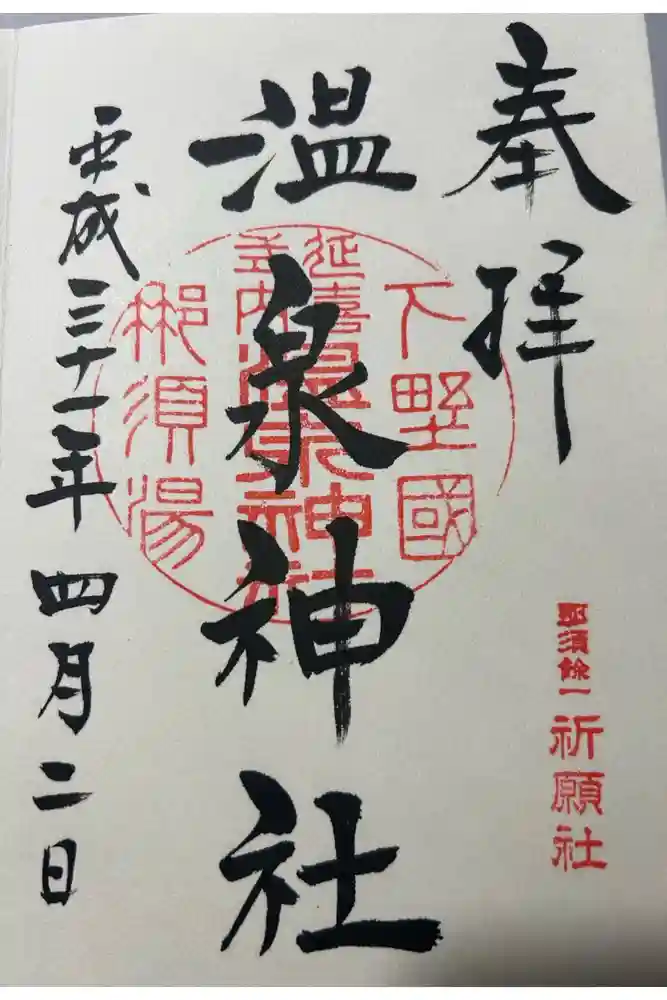 奉拝
下野國
延喜
式内
温泉神社
那須湯
那須餘一
祈願社
温泉神社
平成三十一年四月二日